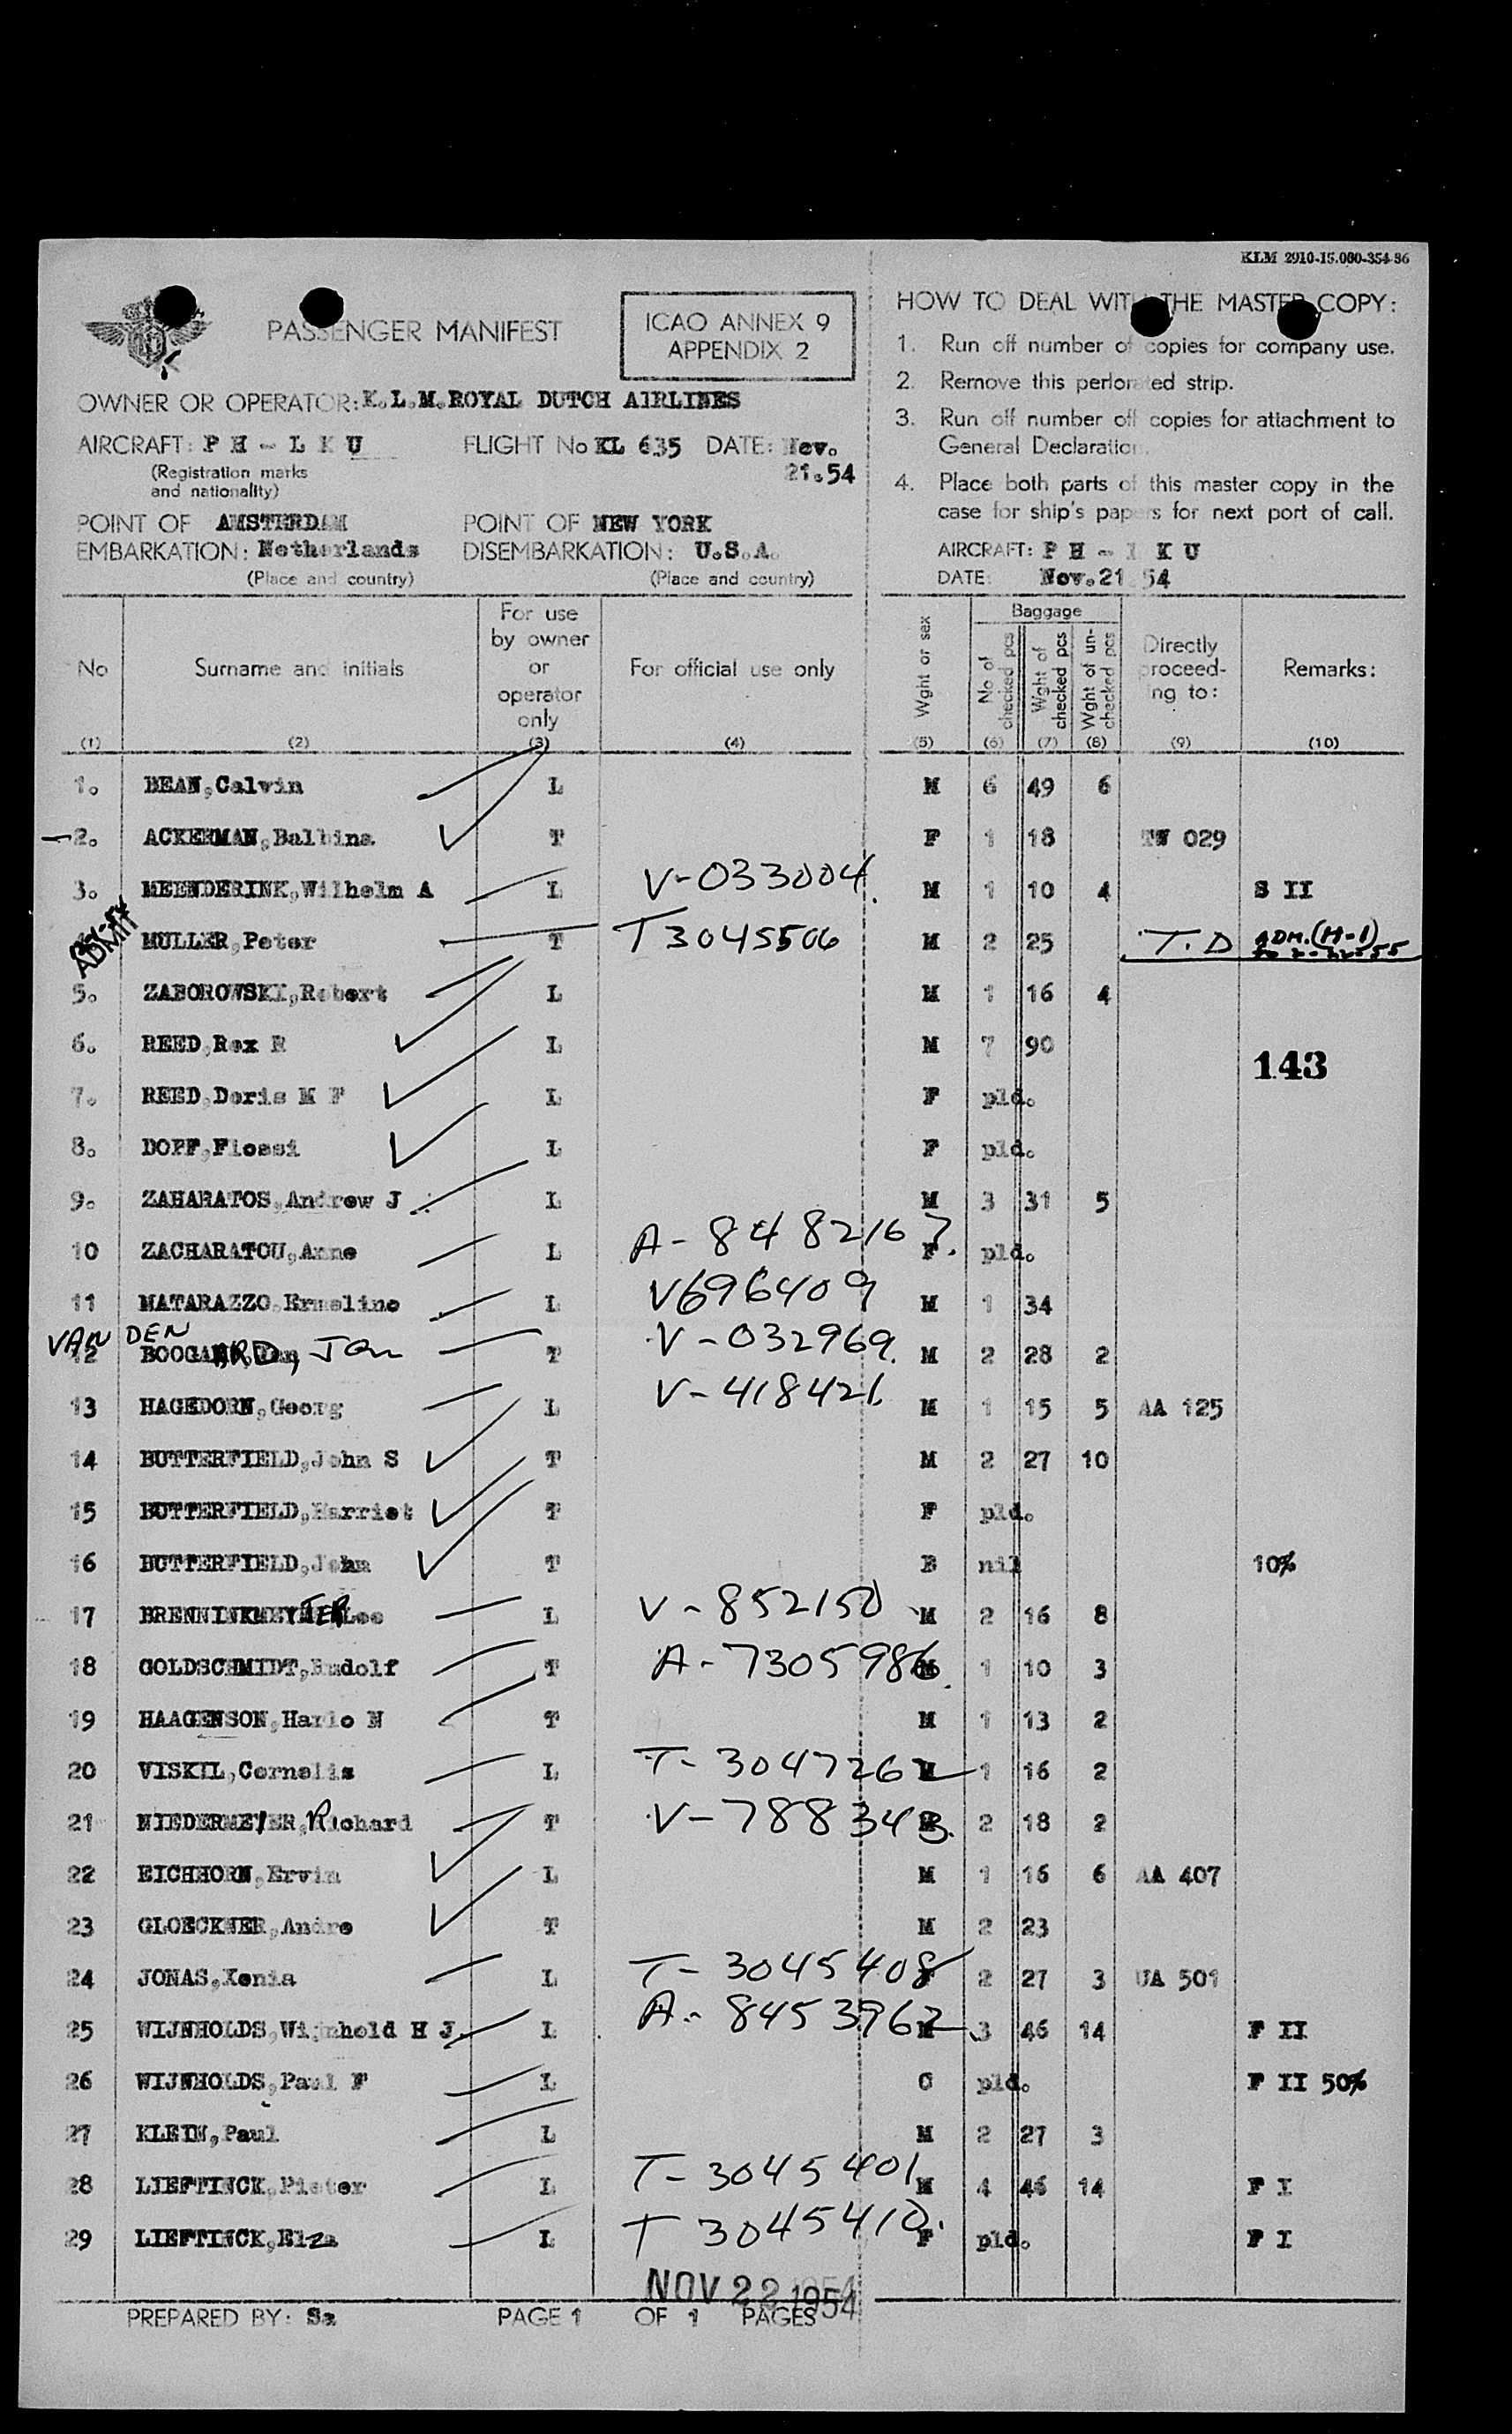 KLM 2910-15.000-354-86
PASSENGER MANIFEST
ICAO ANNEX 9
APPENDIX 2
OWNER OR OPERATOR: K.L.M. ROYAL DUTCH AIRLINES
AIRCRAFT: P H - L K U FLIGHT No KL 635 DATE: Nov. 21.54
(Registration marks
and nationality)
POINT OF EMBARKATION: AMSTERDAM Netherlands
(Place and country)
POINT OF DISEMBARKATION: NEW YORK U.S.A.
(Place and country)
HOW TO DEAL WITH THE MASTER COPY:
1. Run off number of copies for company use.
2. Remove this perforated strip.
3. Run off number off copies for attachment to
General Declaration.
4. Place both parts of this master copy in the
case for ship's papers for next port of call.
AIRCRAFT: P H - L K U
DATE: Nov. 21 54
No (1) Surname and initials (2) For use by owner or operator only (3) For official use only (4) Wght or sex (5) Baggage No of checked pcs (6) Wght of checked pcs (7) Wght of unchecked pcs (8) Directly proceeding to: (9) Remarks: (10)
1. BEAN, Calvin L M 6 49 6
2. ACKERMAN, Balbina T F 1 18 TW 029
3. MEENDERINK, Wilhelm A L V-033004. M 1 10 4 S II
ADMIT MULLER, Peter T T3045506 M 2 25 T.D ADM. (H-1)
5. ZABOROWSKI, Robert L M 1 16 4
6. REED, Rex R L M 7 90
143
7. REED, Doris M F L F pld.
8. DOPF, Flossi L F pld.
9. ZAHARATOS, Andrew J L M 3 31 5
10 ZACHARATOU, Anne L A-8482167. F pld.
11 MATARAZZO, Ermelino L V696409 M 1 34
VAN DEN
12 BOOGAARD, Jan T V-032969. M 2 28 2
13 HAGEDORN, Georg L V-418421. M 1 15 5 AA 125
14 BUTTERFIELD, John S T M 2 27 10
15 BUTTERFIELD, Harriet T F pld.
16 BUTTERFIELD, John T B nil 10%
17 BRENNINKMEYJER, Leo L V-852150 M 2 16 8
18 GOLDSCHMIDT, Rudolf T A-7305986. M 1 10 3
19 HAAGENSON, Harlo N T M 1 13 2
20 VISKIL, Cornelis L T-3047262 M 1 16 2
21 NIEDERMEYER, Richard T V-788343. M 2 18 2
22 EICHHORN, Ervin L M 1 16 6 AA 407
23 GLOECKNER, Andre T M 2 23
24 JONAS, Xenia L T-3045408 F 2 27 3 UA 501
25 WIJNHOLDS, Wijnhold H J. L A-8453962 M 3 46 14 F II
26 WIJNHOLDS, Paul F L C pld. F II 50%
27 KLEIN, Paul L M 2 27 3
28 LIEFTINCK, Pieter L T-3045401 M 4 46 14 F I
29 LIEFTINCK, Elza L T 3045410. F pld. F I
NOV 22 1954
PREPARED BY: Sa PAGE 1 OF 1 PAGES